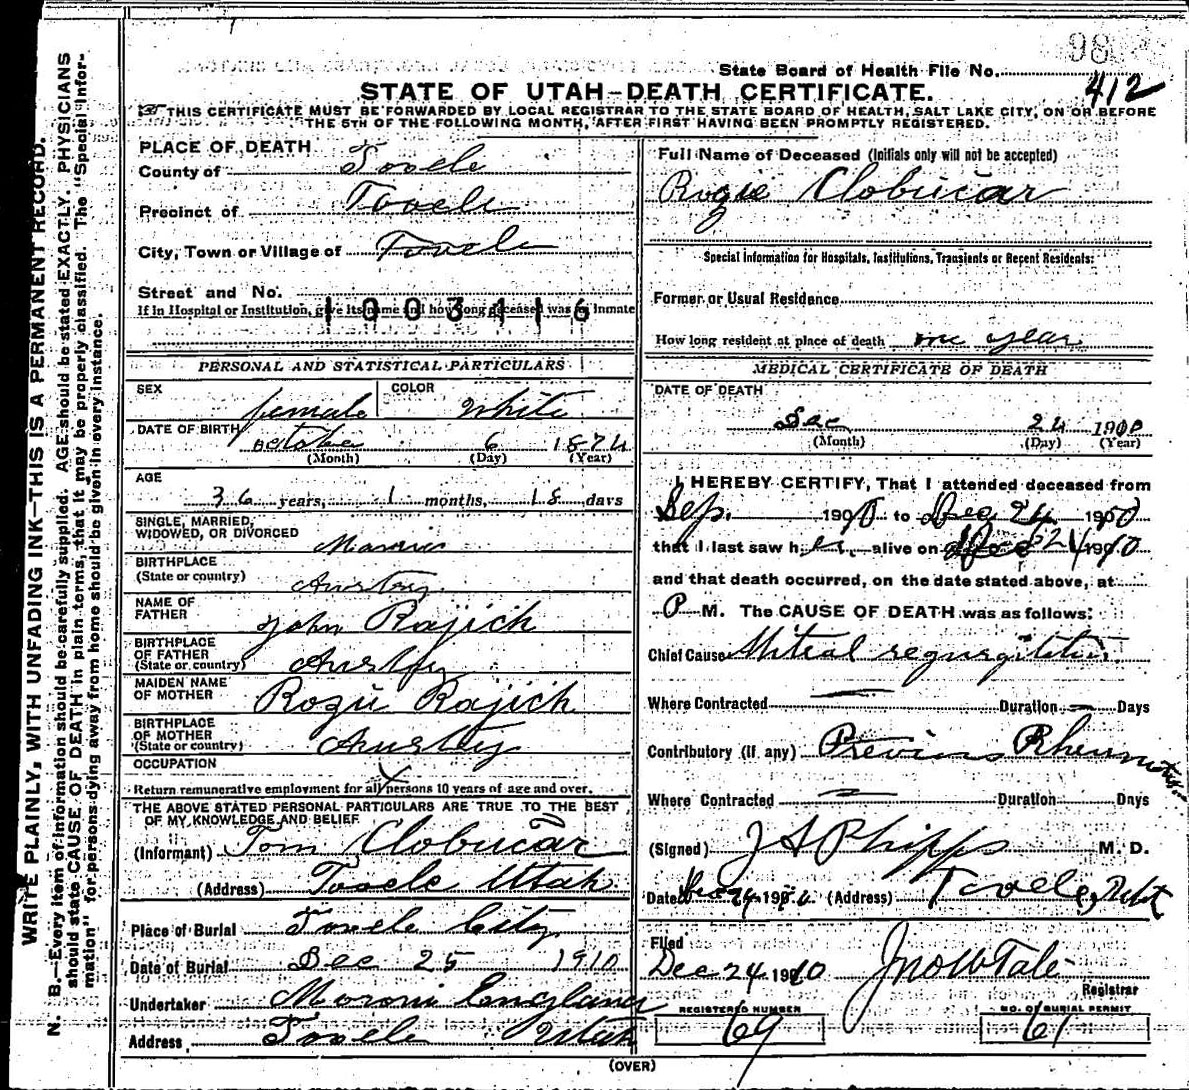 98
State Board of Health File No. 412
STATE OF UTAH—DEATH CERTIFICATE.
THIS CERTIFICATE MUST BE FORWARDED BY LOCAL REGISTRAR TO THE STATE BOARD OF HEALTH, SALT LAKE CITY, ON OR BEFORE
THE 5TH OF THE FOLLOWING MONTH, AFTER FIRST HAVING BEEN PROMPTLY REGISTERED.
WRITE PLAINLY, WITH UNFADING INK—THIS IS A PERMANENT RECORD.
N. B.—Every item of information should be carefully supplied. AGE should be stated EXACTLY. PHYSICIANS
should state CAUSE OF DEATH in plain terms, that it may be properly classified. The "Special Infor-
mation" for persons dying away from home should be given in every instance.
PLACE OF DEATH
County of Tooele
Precinct of Tooele
City, Town or Village of Tooele
Street and No.
If in Hospital or Institution, give its name and how long deceased was an inmate
1003416
PERSONAL AND STATISTICAL PARTICULARS
SEX female
COLOR White
DATE OF BIRTH October 6 1874
(Month) (Day) (Year)
AGE
36 years, 1 months, 18 days
SINGLE, MARRIED,
WIDOWED, OR DIVORCED Married
BIRTHPLACE
(State or country) Austry
NAME OF
FATHER John Rajich
BIRTHPLACE
OF FATHER
(State or country) Austry
MAIDEN NAME
OF MOTHER Rozie Rajich
BIRTHPLACE
OF MOTHER
(State or country) Austry
OCCUPATION
Return remunerative employment for all persons 10 years of age and over.
THE ABOVE STATED PERSONAL PARTICULARS ARE TRUE TO THE BEST
OF MY KNOWLEDGE AND BELIEF
(Informant) Tom Clobucar
(Address) Tooele Utah
Place of Burial Tooele City
Date of Burial Dec 25 1910
Undertaker Moroni England
Address Tooele Utah
Full Name of Deceased (Initials only will not be accepted)
Rozie Clobucar
Special Information for Hospitals, Institutions, Transients or Recent Residents:
Former or Usual Residence
How long resident at place of death one year
MEDICAL CERTIFICATE OF DEATH
DATE OF DEATH
Dec 24 1910
(Month) (Day) (Year)
I HEREBY CERTIFY, That I attended deceased from
Sep. 1910 to Dec 24 1910
that I last saw her alive on Dec 24 1910
and that death occurred, on the date stated above, at
P M. The CAUSE OF DEATH was as follows:
Chief Cause Mitral regurgitation
Where Contracted Duration Days
Contributory (if any) Previous Rheumatism
Where Contracted Duration Days
(Signed) J A Phipps M. D.
Date Dec 24 1910 (Address) Tooele, Utah
Filed
Dec 24 1910 Jno W Tate
Registrar
REGISTERED NUMBER
69
NO. OF BURIAL PERMIT
61
(OVER)